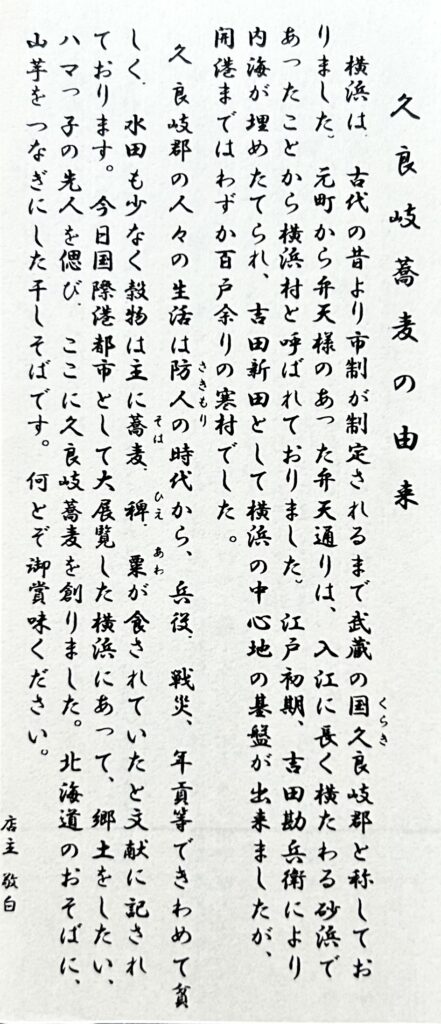 久良岐蕎麦の由来
横浜は、古代の昔より市制が制定されるまで武蔵の国久良岐郡と称してお
くらき
りました。元町から弁天様のあった弁天通りは、入江に長く横たわる砂浜で
あったことから横浜村と呼ばれておりました。江戸初期、吉田勘兵衛により
内海が埋めたてられ、吉田新田として横浜の中心地の基盤が出来ましたが、
開港まではわずか百戸余りの寒村でした。
久良岐郡の人々の生活は防人の時代から、兵役、戦災、年貢等できわめて貧
さきもり
しく、水田も少なく穀物は主に蕎麦、稗、粟が食されていたと文献に記され
そば ひえ あわ
ております。今日国際港都市として大展覧した横浜にあって、郷土をしたい、
ハマっ子の先人を偲び、ここに久良岐蕎麦を創りました。北海道のおそばに、
山芋をつなぎにした干しそばです。何とぞ御賞味ください。
店主 敬白